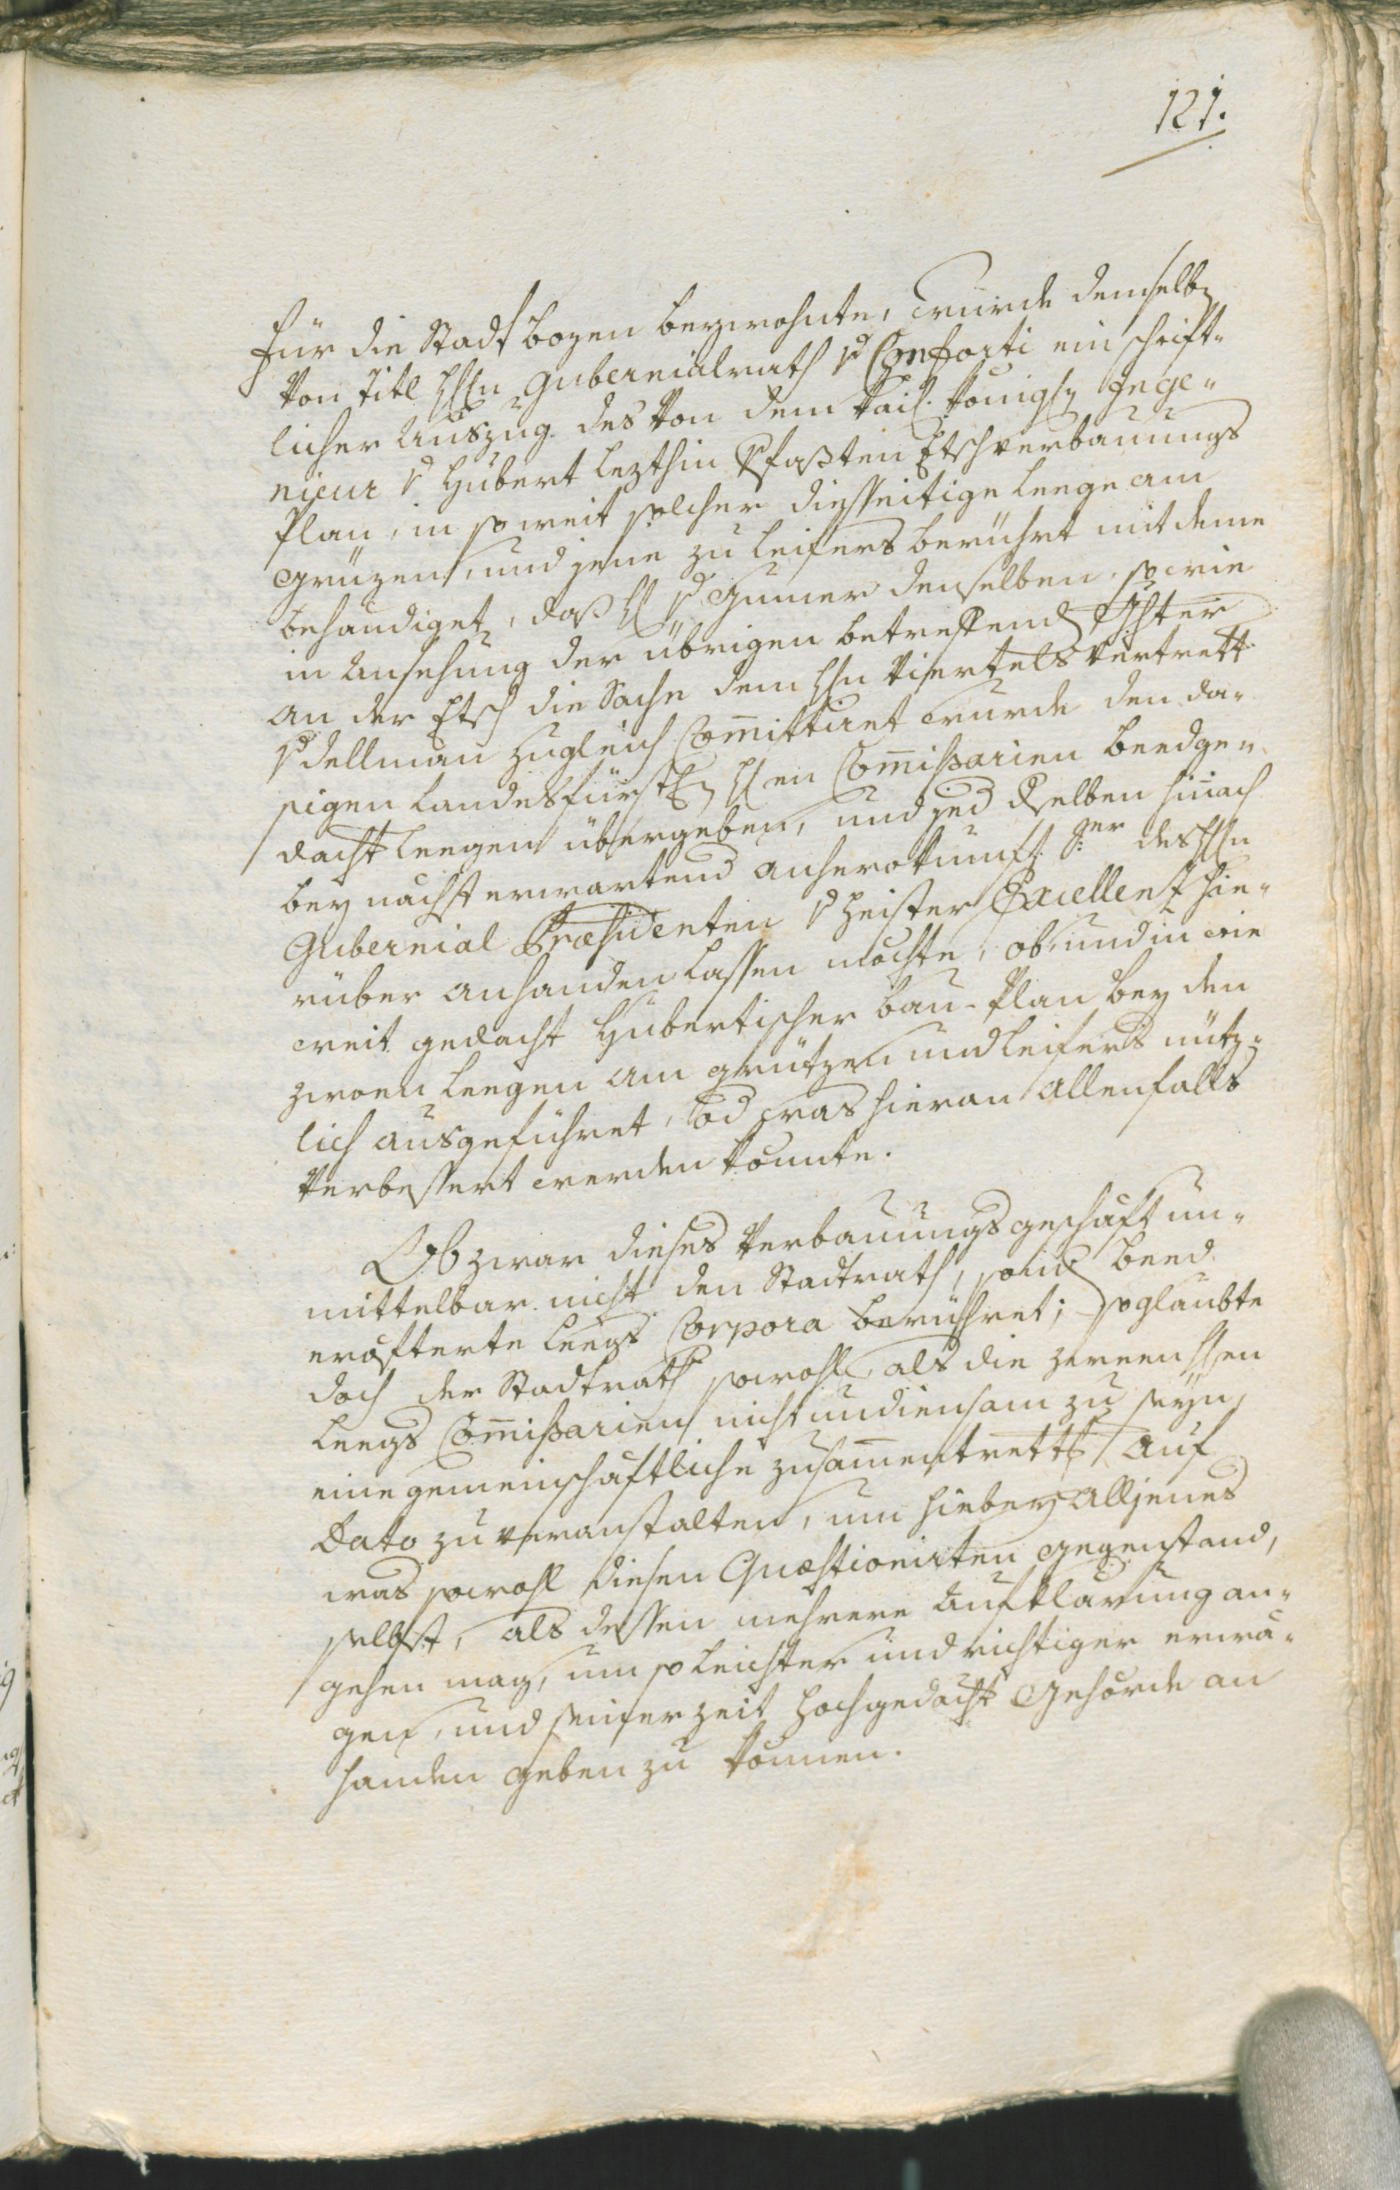 121.
für die Stadt Bozen beywohnte, wurde demselb
von Titl HHn Gubernialrath v Conforti ein schrift-
licher Auszug des von dem kais. königl Inge-
nieur v Hubert lezthin Vfaßten Etschverbauungs
Plan, in so weit solcher diesseitige Leege am
Grüzen, und jene zu Leifers berührt mit deme
behändiget, daß H v Gumer denselben, so wie
in Ansehung der übrigen betreffend Ghter
an der Etsch die Sache dem HHn Viertels Vertrett
v Dellman zugleich Committirt wurde den da-
sigen Landesfürstl HHen Commißarien beedge-
dacht Leegen übergeben, und jed dselben hinach
bey nächst erwartend anherokunft Sr des HHn
Gubernial Præsidenten v Heister Excellenz hie-
rüber anhanden lassen möchte, ob, und in wie
weit gedacht Hubertischer Bau-Plan bey den
zwoen Leegen am Grützen und Leifers nütz-
lich ausgeführet, od was hieran allenfalls
verbessert werden könnte.
Obzwar dieses Verbauungsgeschäft un-
mittelbar nicht den Stadtrath, sond beed
eröfterte Leegs Corpora berühret; so glaubte
doch der Stadtrath sowohl, als die zween HHen
Leegs Commißarien nicht undiensam zu seyn,
eine gemeinschaftliche Zusammentrettg auf
Dato zu veranstalten, um hiebey Alljenes
was sowohl diesen Quæstionirten Gegenstand,
selbst, als dessen mehrere Aufklärung an-
gehen mag, um so leichter und richtiger erwä-
gen, und seiner Zeit hochgedacht Gehörde an
handen geben zu können.